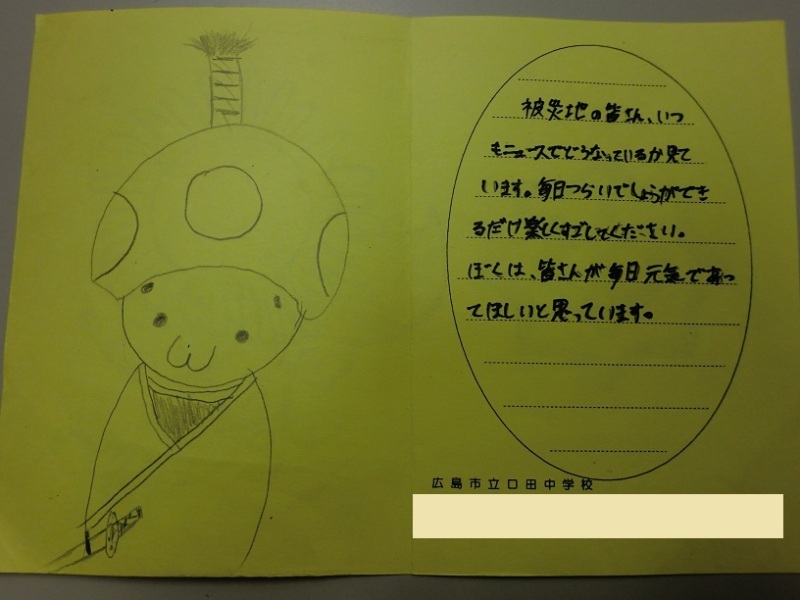 被災地の皆さん、いつ
もニュースでどうなっているか見て
います。毎日つらいでしょうができ
るだけ楽しくすごしてください。
ぼくは、皆さんが毎日元気であっ
てほしいと思っています。
広島市立口田中学校